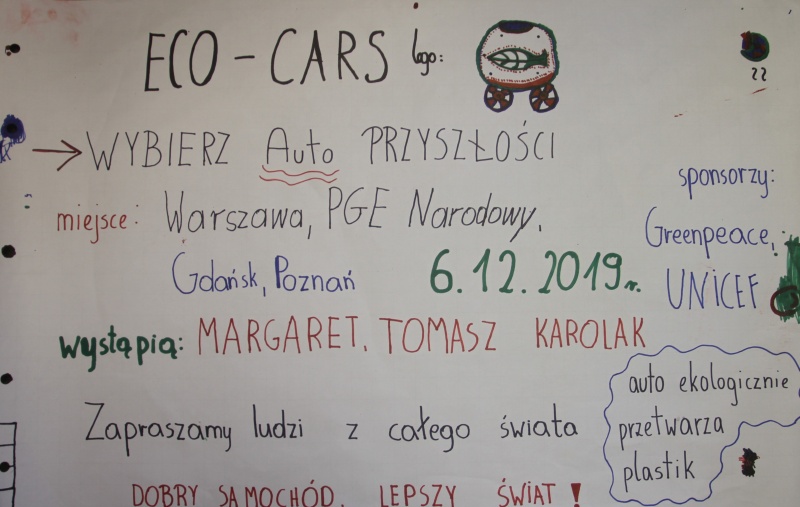 ECO - CARS logo:
→ WYBIERZ Auto PRZYSZŁOŚCI
miejsce: Warszawa, PGE Narodowy,
Gdańsk, Poznań 6.12.2019r.
sponsorzy:
Greenpeace,
UNICEF
wystąpią: MARGARET, TOMASZ KAROLAK
Zapraszamy ludzi z całego świata
auto ekologicznie
przetwarza
plastik
DOBRY SAMOCHÓD, LEPSZY ŚWIAT!